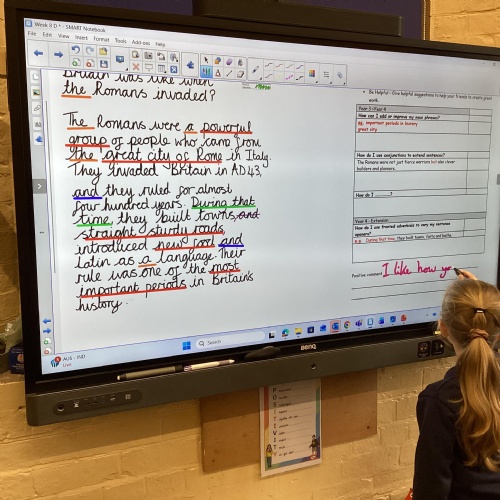 Week 8 D * - SMART Notebook
File Edit View Insert Format Tools Add-ons Help
Britain was like when
the Romans invaded?
The Romans were a powerful
group of people who came from
the great city of Rome in Italy.
They invaded Britain in AD43,
and they ruled for almost
four hundred years. During that
time, they built towns, and
straight sturdy roads,
introduced new food and
latin as a language. Their
rule was one of the most
important periods in Britain's
history.
Be Helpful - Give helpful suggestions to help your friends to create great
work.
Year 3 + Year 4
How can I add or improve my noun phrases?
eg. important periods in history
great city
How do I use conjunctions to extend sentences?
The Romans were not just fierce warriors but also clever
builders and planners.
How do I
Year 4 - Extension
How do I use fronted adverbials to vary my sentence
openers?
e.g. During that time, they built towns, forts and baths.
Positive comment I like how yo
AUS - IND
Live
Search
BenQ
POSITIVITY